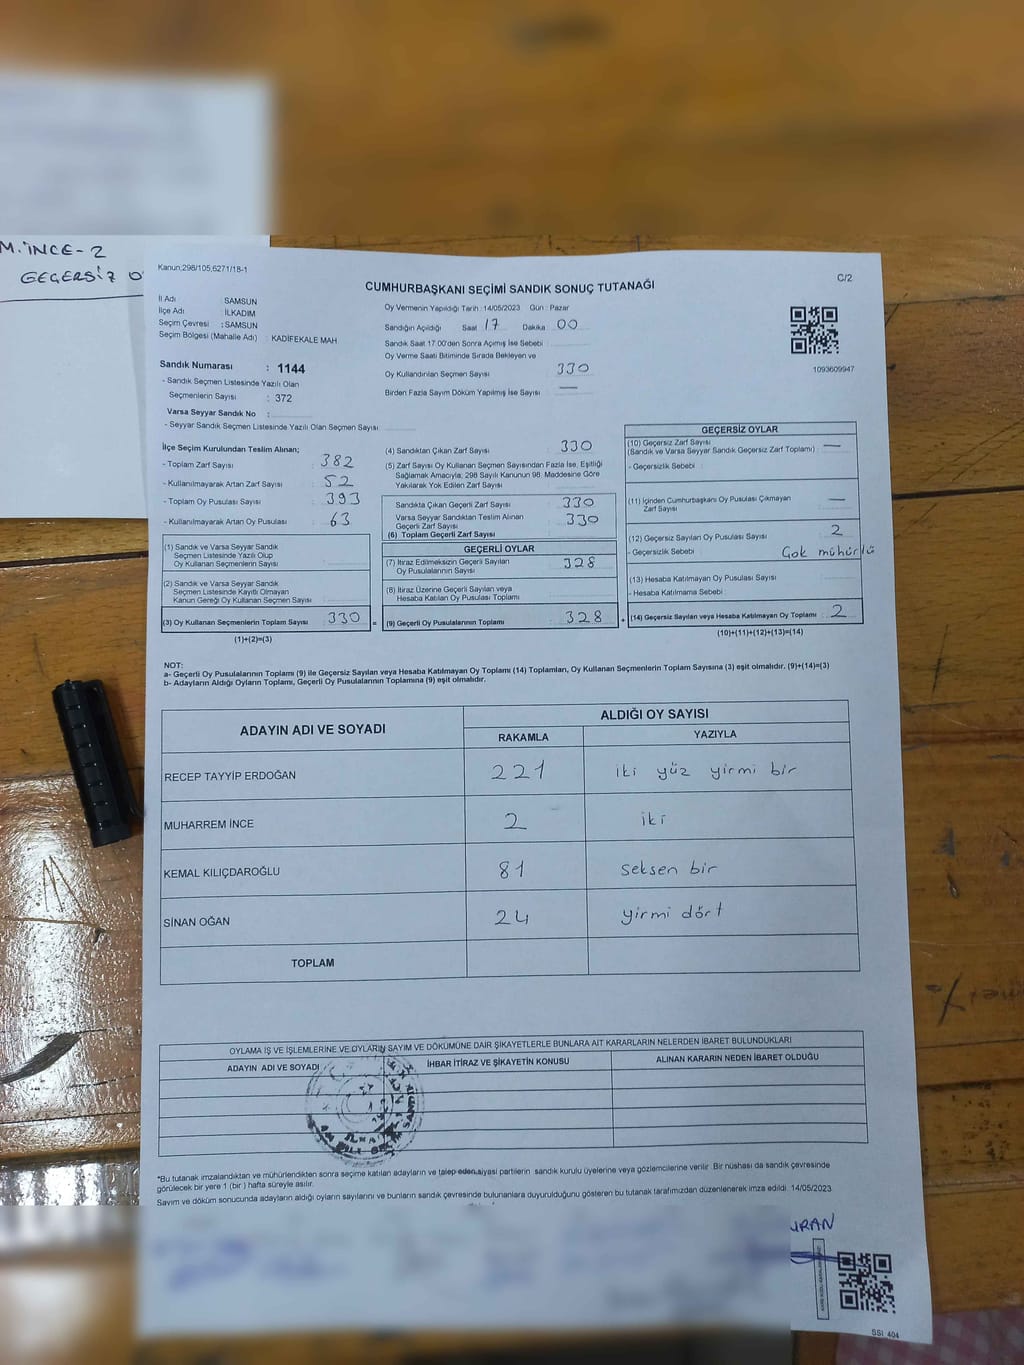 M.İNCE-2
GEÇERSİZ
Kanun;298/105,6271/18-1
C/2
CUMHURBAŞKANI SEÇİMİ SANDIK SONUÇ TUTANAĞI
İl Adı : SAMSUN
İlçe Adı : İLKADIM
Seçim Çevresi : SAMSUN
Seçim Bölgesi (Mahalle Adı) : KADİFEKALE MAH
Sandık Numarası : 1144
- Sandık Seçmen Listesinde Yazılı Olan
Seçmenlerin Sayısı : 372
Varsa Seyyar Sandık No :
- Seyyar Sandık Seçmen Listesinde Yazılı Olan Seçmen Sayısı
Oy Vermenin Yapıldığı Tarih : 14/05/2023 Gün : Pazar
Sandığın Açıldığı Saat 17 Dakika 00
Sandık Saat 17:00'den Sonra Açılmış İse Sebebi
Oy Verme Saati Bitiminde Sırada Bekleyen ve
Oy Kullandırılan Seçmen Sayısı 330
Birden Fazla Sayım Döküm Yapılmış İse Sayısı —
1093609947
İlçe Seçim Kurulundan Teslim Alınan;
- Toplam Zarf Sayısı : 382
- Kullanılmayarak Artan Zarf Sayısı : 52
- Toplam Oy Pusulası Sayısı : 393
- Kullanılmayarak Artan Oy Pusulası : 63
(1) Sandık ve Varsa Seyyar Sandık
Seçmen Listesinde Yazılı Olup
Oy Kullanan Seçmenlerin Sayısı :
(2) Sandık ve Varsa Seyyar Sandık
Seçmen Listesinde Kayıtlı Olmayan
Kanun Gereği Oy Kullanan Seçmen Sayısı :
(3) Oy Kullanan Seçmenlerin Toplam Sayısı : 330
(1)+(2)=(3)
(4) Sandıktan Çıkan Zarf Sayısı : 330
(5) Zarf Sayısı Oy Kullanan Seçmen Sayısından Fazla İse, Eşitliği
Sağlamak Amacıyla; 298 Sayılı Kanunun 98. Maddesine Göre
Yakılarak Yok Edilen Zarf Sayısı
Sandıkta Çıkan Geçerli Zarf Sayısı : 330
Varsa Seyyar Sandıktan Teslim Alınan
Geçerli Zarf Sayısı : 330
(6) Toplam Geçerli Zarf Sayısı :
GEÇERLİ OYLAR
(7) İtiraz Edilmeksizin Geçerli Sayılan
Oy Pusulalarının Sayısı : 328
(8) İtiraz Üzerine Geçerli Sayılan veya
Hesaba Katılan Oy Pusulası Toplamı :
(9) Geçerli Oy Pusulalarının Toplamı : 328
GEÇERSİZ OYLAR
(10) Geçersiz Zarf Sayısı
(Sandık ve Varsa Seyyar Sandık Geçersiz Zarf Toplamı) : —
- Geçersizlik Sebebi :
(11) İçinden Cumhurbaşkanı Oy Pusulası Çıkmayan
Zarf Sayısı : —
(12) Geçersiz Sayılan Oy Pusulası Sayısı : 2
- Geçersizlik Sebebi : Çok mühürlü
(13) Hesaba Katılmayan Oy Pusulası Sayısı :
- Hesaba Katılmama Sebebi :
(14) Geçersiz Sayılan veya Hesaba Katılmayan Oy Toplamı : 2
(10)+(11)+(12)+(13)=(14)
NOT:
a- Geçerli Oy Pusulalarının Toplamı (9) ile Geçersiz Sayılan veya Hesaba Katılmayan Oy Toplamı (14) Toplamları, Oy Kullanan Seçmenlerin Toplam Sayısına (3) eşit olmalıdır. (9)+(14)=(3)
b- Adayların Aldığı Oyların Toplamı, Geçerli Oy Pusulalarının Toplamına (9) eşit olmalıdır.
ADAYIN ADI VE SOYADI ALDIĞI OY SAYISI
RAKAMLA YAZIYLA
RECEP TAYYİP ERDOĞAN 221 iki yüz yirmi bir
MUHARREM İNCE 2 iki
KEMAL KILIÇDAROĞLU 81 seksen bir
SİNAN OĞAN 24 yirmi dört
TOPLAM
OYLAMA İŞ VE İŞLEMLERİNE VE OYLARIN SAYIM VE DÖKÜMÜNE DAİR ŞİKAYETLERLE BUNLARA AİT KARARLARIN NELERDEN İBARET BULUNDUKLARI
ADAYIN ADI VE SOYADI İHBAR İTİRAZ VE ŞİKAYETİN KONUSU ALINAN KARARIN NEDEN İBARET OLDUĞU
*Bu tutanak imzalandıktan ve mühürlendikten sonra seçime katılan adayların ve talep eden siyasi partilerin sandık kurulu üyelerine veya gözlemcilerine verilir. Bir nüshası da sandık çevresinde
görülecek bir yere 1 (bir) hafta süreyle asılır.
Sayım ve döküm sonucunda adayların aldığı oyların sayılarını ve bunların sandık çevresinde bulunanlara duyurulduğunu gösteren bu tutanak tarafımızdan düzenlenerek imza edildi. 14/05/2023
URAN
SSI 404